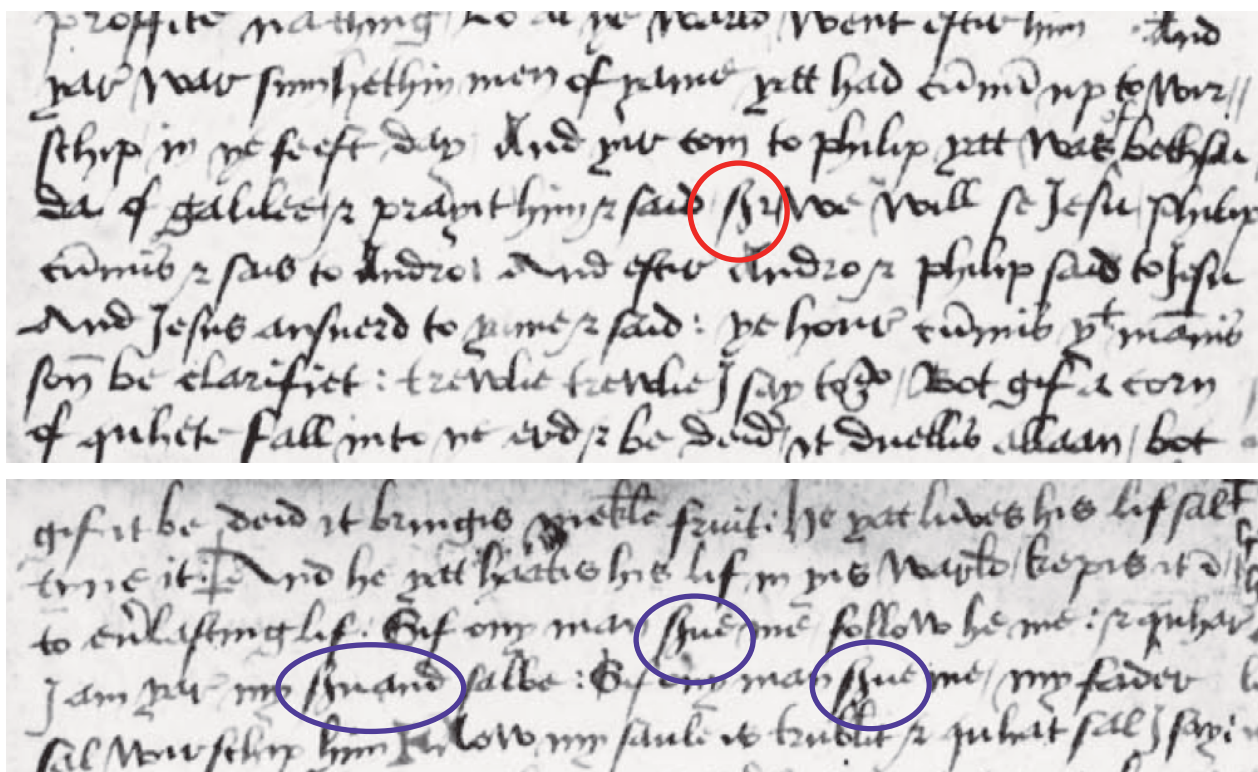 proffite nathing / lo al ye warld went eftir him And
yar war sum hethin men of yame yatt had cūmī up to wir //
schip in ye feest day And yir com to philip yatt was of bethsai
da of galilee / ⁊ prayit him ⁊ said / shr / we will se Jesu / philip
cūmis ⁊ sais to Andro / And eftir Andro ⁊ philip said to Jesu
And Jesus ansuerd to yame ⁊ said : ye hour cūmis yt mānis
son̄ be clarifiet : trewlie trewlie J say to yo / Bot gif a corn
of quhete fall into ye erd ⁊ be deid / it duellis allaan / bot
gif it be deid it bringis mekle fruit : he yatt luves his lif sal
tyne it : And he yatt haatis his lif in yis warld / kepis it
to eūlasting lif / Gif ony man shue me follow he me : ⁊ quhar
J am yar my shuand salbe : Gif ony man shue me / my fader
sal wirschip him Now my saule is trublit ⁊ quhat sal J say